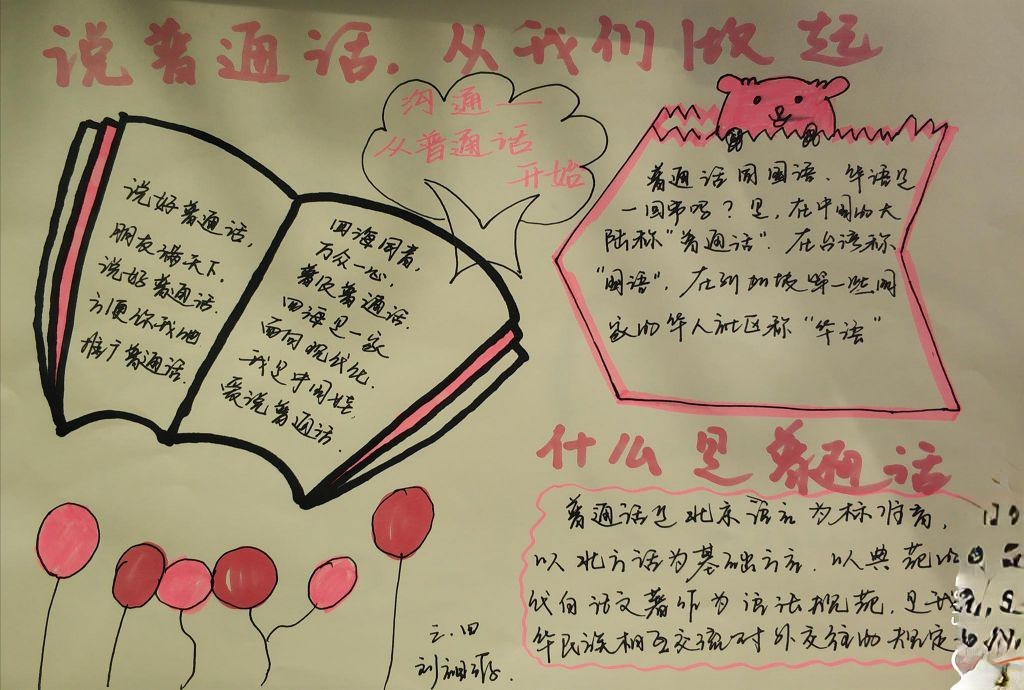 说普通话.从我们做起
沟通一
从普通话
开始
说好普通话,
朋友满天下.
说好普通话.
方便你我他
推广普通话.
四海同音,
万众一心,
普及普通话.
四海是一家
面向现代化.
我是中国娃,
爱说普通话.
普通话同国语、华语是
一回事吗?是,在中国的大
陆称"普通话".在台湾称
"国语",在新加坡等一些国
家的华人社区称"华语"
什么是普通话
普通话是北京语言为标准音,
以北方话为基础方言.以典范的
代白话文著作为语法规范,是我
华民族相互交流对外交往的规定
三.四
刘